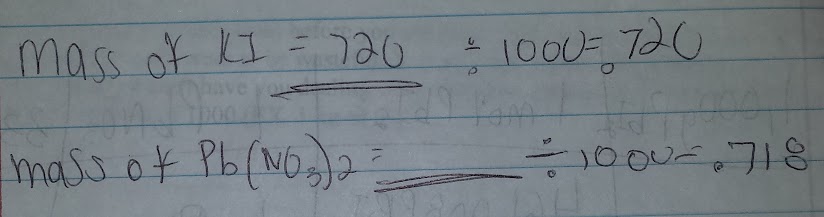 mass of KI = 720 ÷ 1000 = .720
mass of Pb(NO3)2 = ____ ÷ 1000 = .718